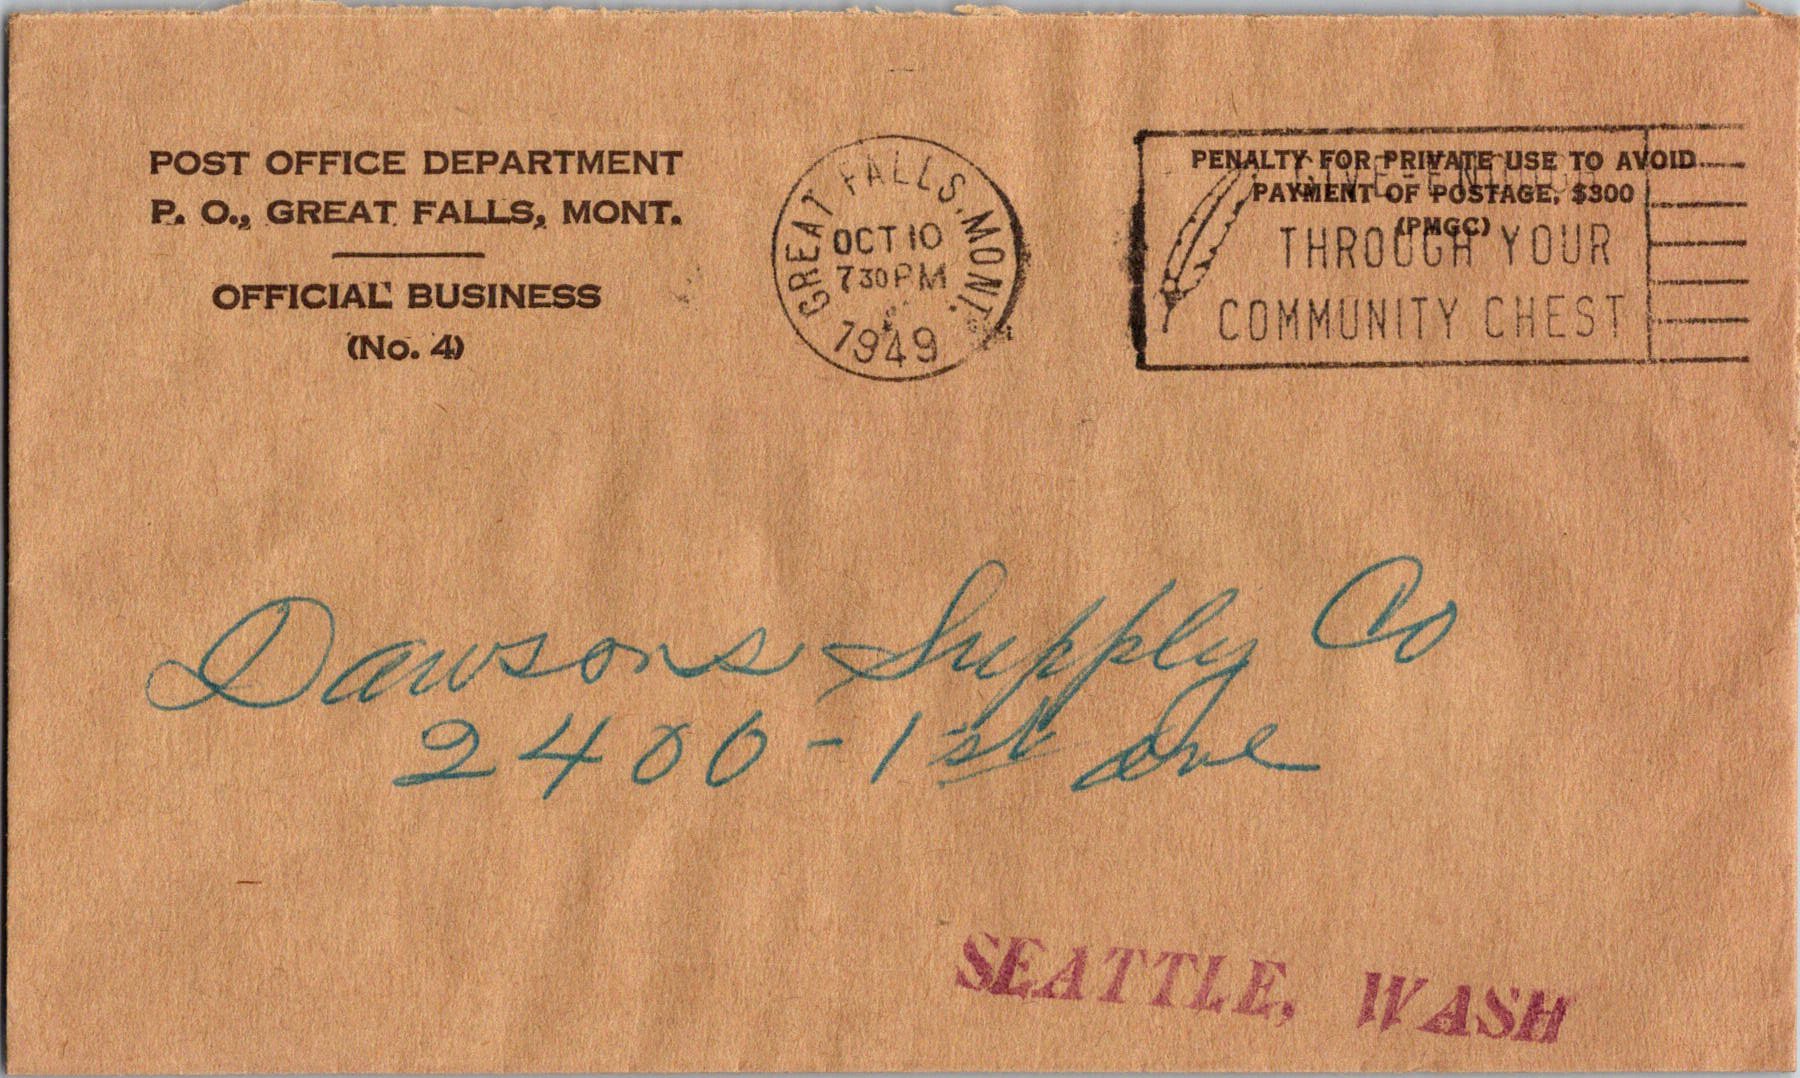 POST OFFICE DEPARTMENT
P. O., GREAT FALLS, MONT.
OFFICIAL BUSINESS
(No. 4)
GREAT FALLS, MONT.
OCT 10
7 30 PM
1949
PENALTY FOR PRIVATE USE TO AVOID
PAYMENT OF POSTAGE, $300
(PMGC)
THROUGH YOUR
COMMUNITY CHEST
Dawsons Supply Co
2400 - 1st Ave
SEATTLE, WASH